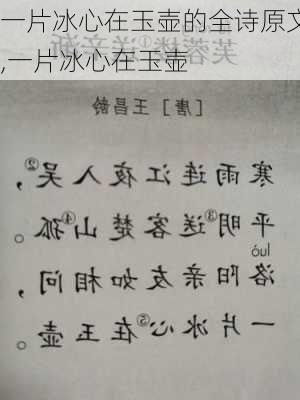 一片冰心在玉壶的全诗原文
,一片冰心在玉壶
芙蓉楼①送辛渐
[唐] 王昌龄
寒雨连江夜入吴②，
平明③送客楚山④孤。
luò
洛阳亲友如相问，
一片冰心⑤在玉壶。